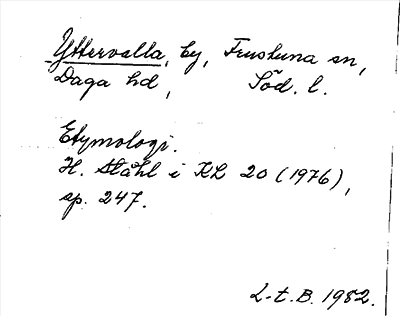 Yttervalla, by, Frustuna sn,
Daga hd, Söd. l.
Etymologi.
H. Ståhl i KL 20 (1976),
sp. 247.
L-t. B. 1982.